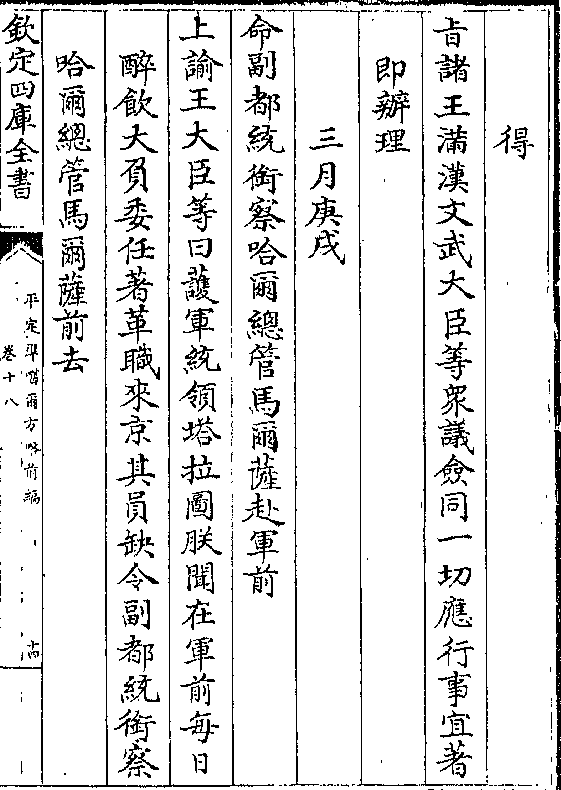 得
旨諸王滿漢文武大臣等衆議僉同一切應行事宜著
即辦理
三月庚戌
命副都統銜察哈爾總管馬爾薩赴軍前
上諭王大臣等曰護軍統領塔拉圖朕聞在軍前每日
醉飲大負委任著革職來京其員缺令副都統銜察
哈爾總管馬爾薩前去
欽定四庫全書
平定準噶爾方略前編
卷十八